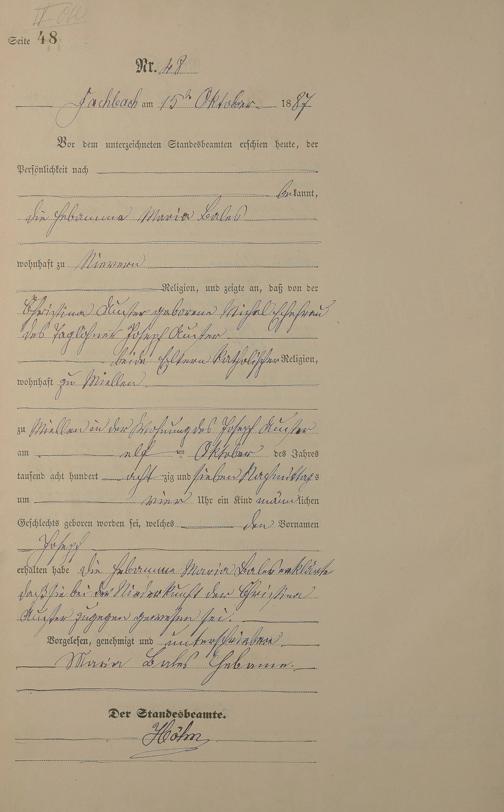 Seite 48
Nr. 48
Fachbach am 15ten Oktober 1887
Vor dem unterzeichneten Standesbeamten erschien heute, der
Persönlichkeit nach
bekannt,
die Hebamme Maria Bales
wohnhaft zu Nievern
Religion, und zeigte an, daß von der
Christina Auster geborene Michel Ehefrau
des Taglöhner Joseph Auster
beide Eltern Katholischer Religion,
wohnhaft zu Miellen
zu Miellen in der Wohnung des Joseph Auster
am elf ten Oktober des Jahres
tausend acht hundert acht zig und sieben Nachmittags
um vier Uhr ein Kind männlichen
Geschlechts geboren worden sei, welches den Vornamen
Joseph
erhalten habe die Hebamme Maria Bales erklärte
daß sie bei der Niederkunft der Christina
Auster zugegen gewesen sei.
Vorgelesen, genehmigt und unterschrieben
Maria Bales Hebame
Der Standesbeamte.
Höhn